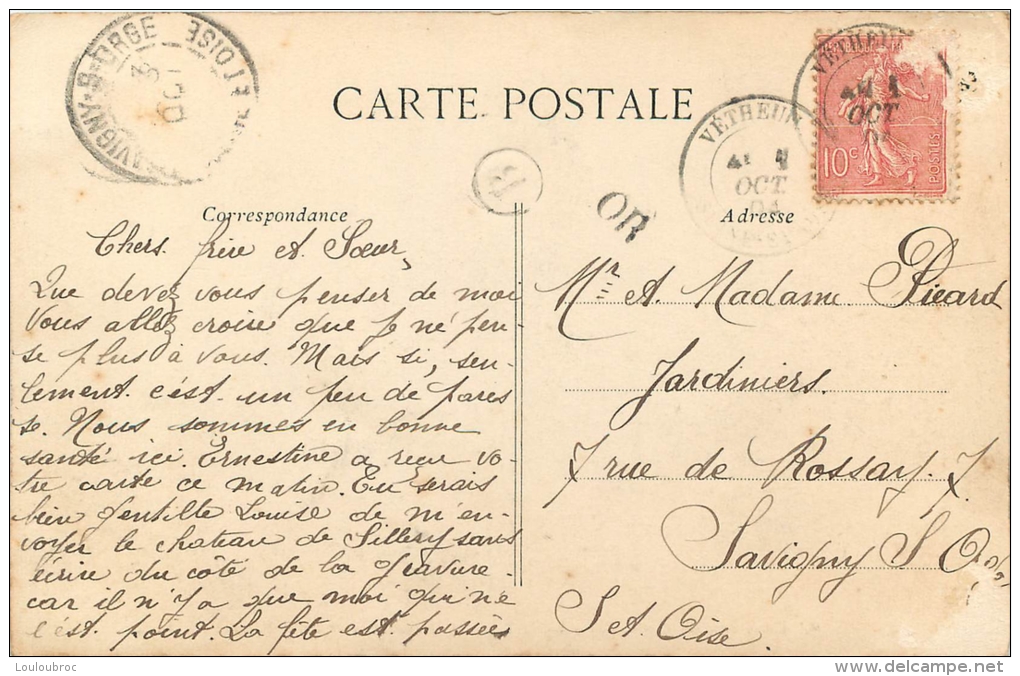 CARTE POSTALE
Correspondance
Chers frère et Sœur,
Que devez vous penser de moi
Vous allez croire que je ne pen-
se plus à vous. Mais si, seu-
lement c'est un peu de pares
se. Nous sommes en bonne
santé ici. Ernestine a reçu vo-
tre carte ce matin. Tu serais
bien gentille Louise de m'en-
voyer le chateau de Sillery sans
écrire du côté de la gravure
car il n'y a que moi qui ne
l'est point. La fête est passée
Adresse
Mr et Madame Picard
Jardiniers.
7 rue de Rossay. 7.
Savigny S Orge
S et Oise
VÉTHEUIL
OCT
04
VÉTHEUIL
OCT
10c
POSTES
SAVIGNY-S-ORGE
OCT
ET OISE
OR
Louloubroc
http://www.delcampe.net